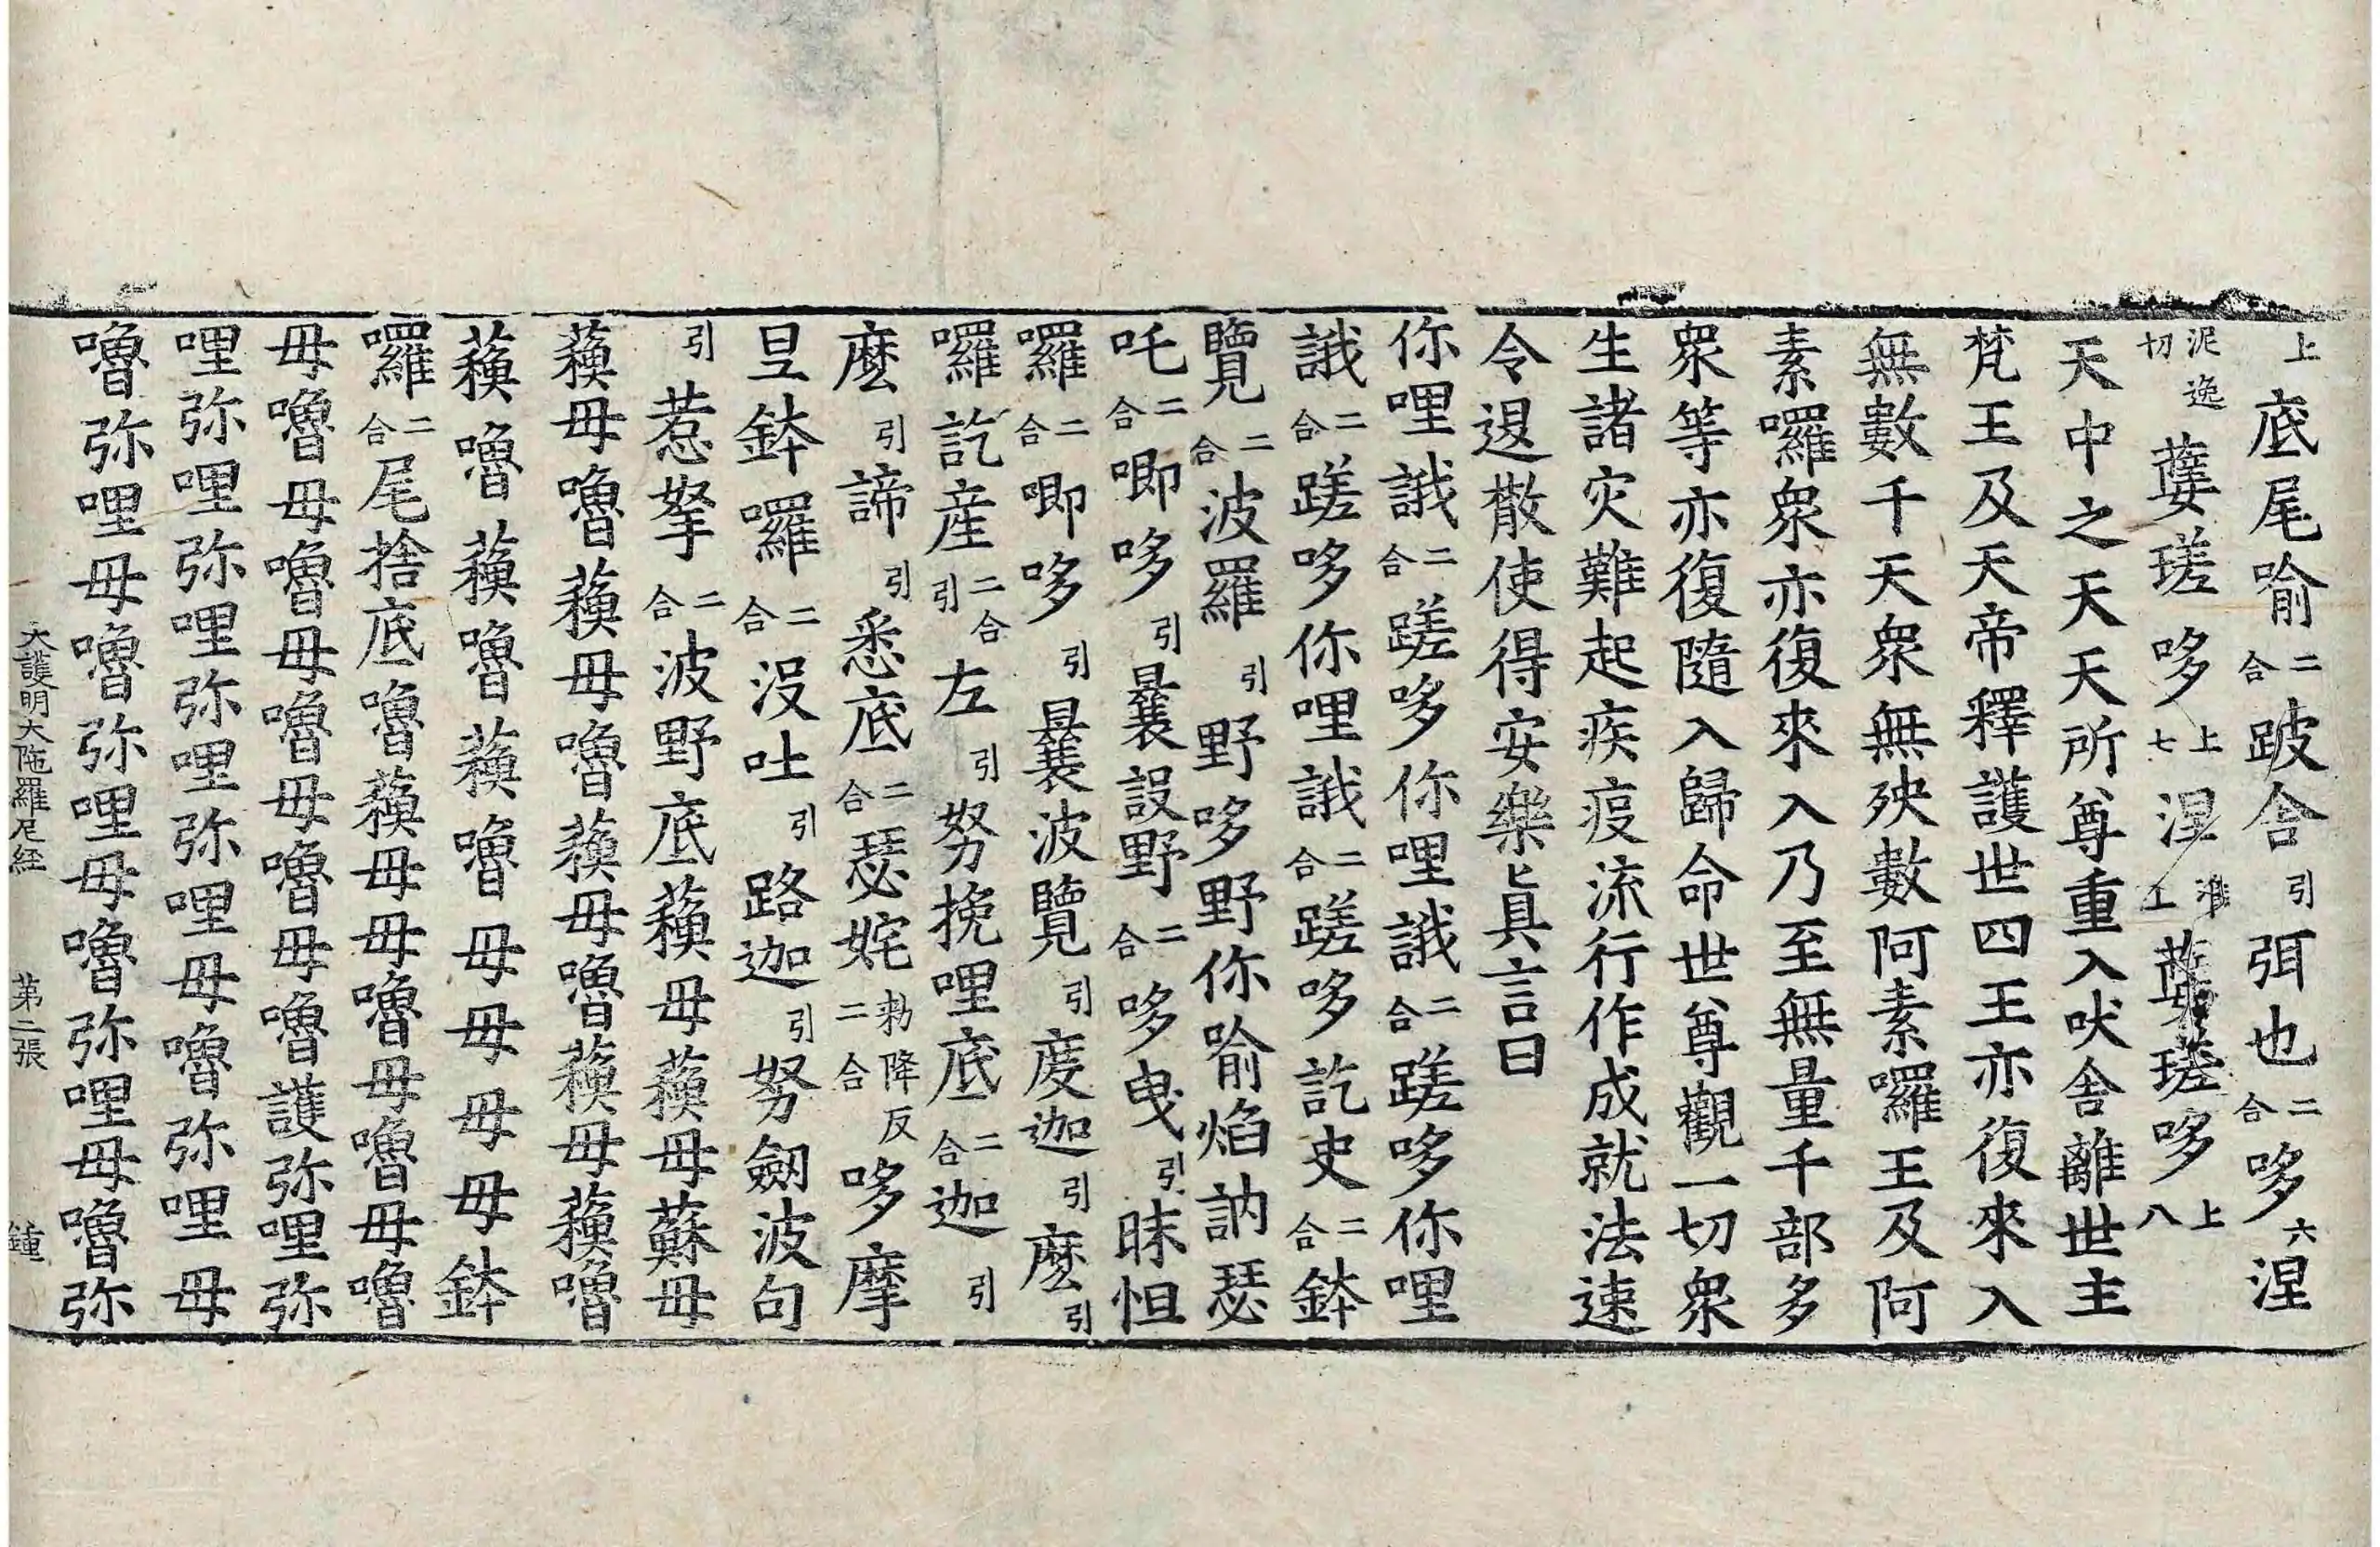 上底尾喻二合跛舍引弭也二合哆六涅
泥逸切蘡瑳哆上七涅蘡瑳哆上八
天中之天天所尊重入吠舍離世主
梵王及天帝釋護世四王亦復來入
無數千天衆無殃數阿素囉王及阿
素囉衆亦復來入乃至無量千部多
衆等亦復隨入歸命世尊觀一切衆
生諸灾難起疾疫流行作成就法速
令退散使得安樂即真言曰
你哩誐二合蹉哆你哩誐二合蹉哆你哩
誐二合蹉哆你哩誐二合蹉哆訖史二合鉢
覽二合波羅引野哆野你喻焰訥瑟
吒二合唧哆引曩設野二合哆曳引昧怛
囉二合唧哆引曩波覽引度迦引麼引
囉訖産二合引左引努挽哩底二合迦引
麼引諦引悉底二合瑟姹勑降反二合哆摩
旦鉢囉二合沒吐引路迦引努劒波句
引惹拏二合波野底蘱毋蘱毋蘇毋
蘱毋嚕蘱毋嚕蘱毋嚕蘱毋蘱嚕
蘱嚕蘱嚕蘱嚕毋毋毋毋鉢
囉二合尾捨底嚕蘱毋毋嚕毋嚕毋嚕
毋嚕毋嚕毋嚕毋嚕毋嚕護弥哩弥
哩弥哩弥哩弥哩弥哩毋嚕弥哩毋
嚕弥哩毋嚕弥哩毋嚕弥哩毋嚕弥
大護明大陁羅尼經　第二張　鍾